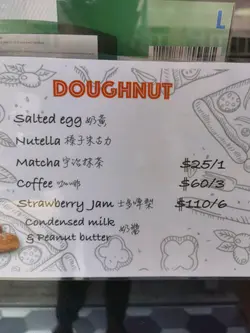 L
DOUGHNUT
Salted egg 奶黃
Nutella 榛子朱古力
Matcha 宇治抹茶 $25/1
Coffee 咖啡 $60/3
Strawberry Jam 士多啤梨 $110/6
Condensed milk
& Peanut butter 奶醬